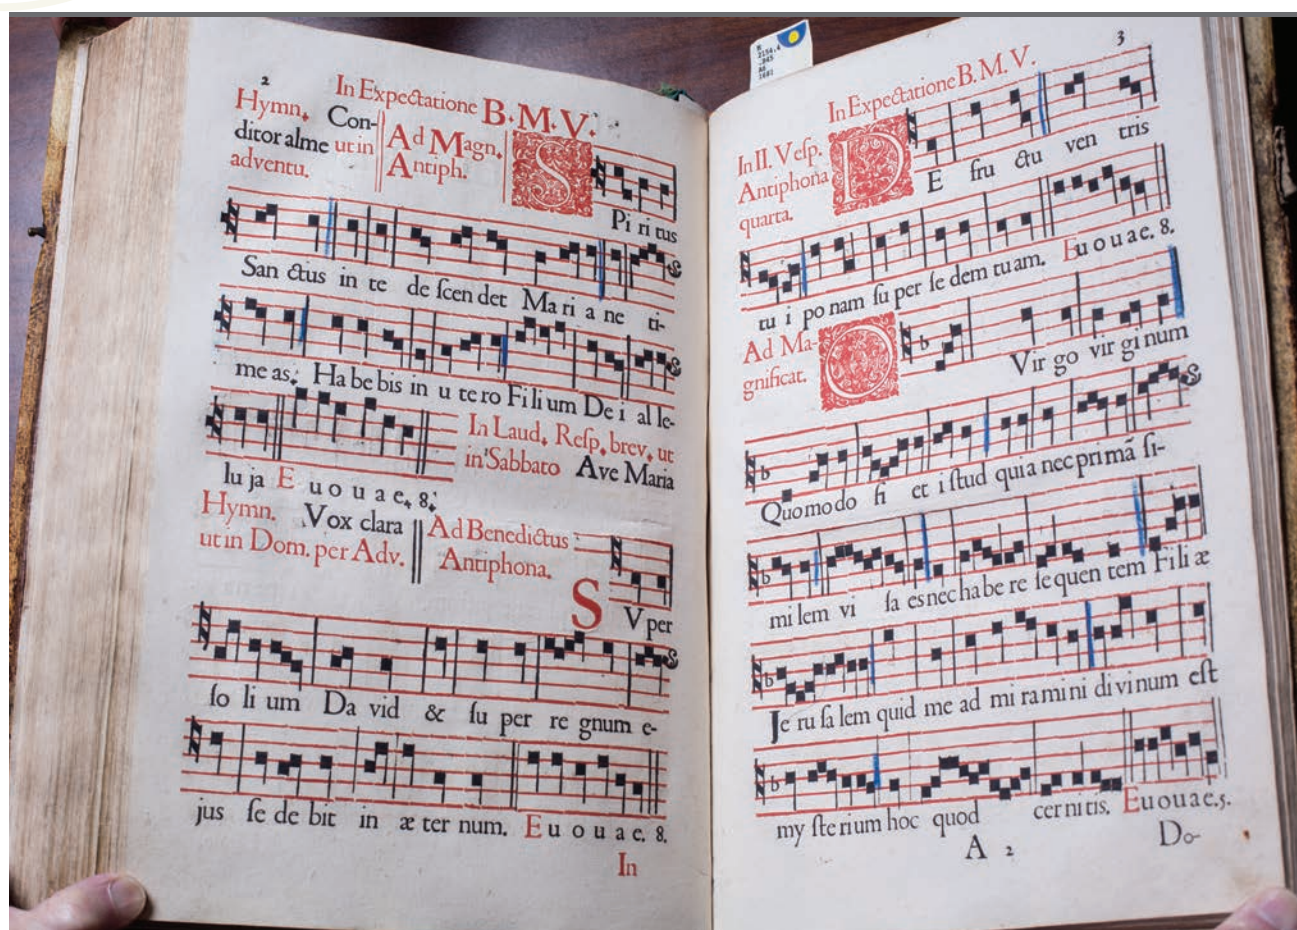 2
In Expectatione B. M. V.
Hymn. Con-
ditor alme ut in
adventu.
Ad Magn.
Antiph.
S
Pi ri tus
San ctus in te de ſcen det Ma ri a ne ti-
me as: Ha be bis in u te ro Fi li um De i al le-
lu ja E u o u a e. 8.
In Laud. Reſp. brev. ut
in Sabbato Ave Maria
Hymn. Vox clara
ut in Dom. per Adv.
Ad Benedictus
Antiphona.
S V per
ſo li um Da vid & ſu per re gnum e-
jus ſe de bit in æ ter num. E u o u a e. 8.
In
3
In Expectatione B. M. V.
In II. Veſp.
Antiphona
quarta.
D E fru ctu ven tris
tu i po nam ſu per ſe dem tu am. Eu o u ae. 8.
Ad Ma-
gnificat.
O
Vir go vir gi num
Quo mo do fi et i ſtud qui a nec pri mã ſi-
mi lem vi ſa es nec ha be re ſe quen tem Fi li æ
Je ru ſa lem quid me ad mi ra mi ni di vi num eſt
my ſte rium hoc quod cer ni tis. Eu o u a e. 5.
A 2
Do-